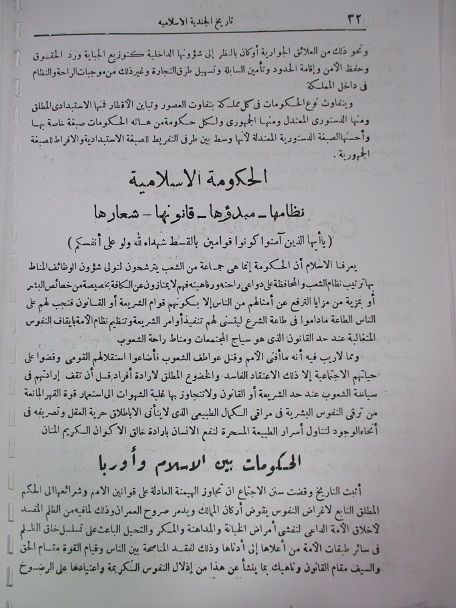 ٣٢
تاريخ الجندية الاسلاميه
ونحو ذلك من العلائق الجوارية أو كان بالنظر إلى شؤونها الداخلية كتوزيع الجباية ورد الحقوق
وحفظ الأمن وإقامة الحدود وتأمين السابلة وتسهيل طرق التجارة وغير ذلك من موجبات الراحة والنظام
فى داخل المملكة
ويتفاوت نوع الحكومات فى كل مملكة بتفاوت العصور وتباين الأقطار فمنها الاستبدادى المطلق
ومنها الدستورى المعتدل ومنها الجمهورى ولكل حكومة من هاته الحكومات صبغة خاصة بها
وأحسنها الصبغة الدستورية المعتدلة لأنها وسط بين طرفى التفريط للصبغة الاستبدادية والافراط للصبغة
الجمهورية .
الحكومة الاسلامية
نظامها - مبدؤها - قانونها - شعارها
( ياأيها الذين آمنوا كونوا قوامين بالقسط شهداء لله ولو على أنفسكم )
يعرفنا الاسلام أن الحكومة إنما هى جماعة من الشعب يترشحون لتولى شؤون الوظائف المناط
بها ترتيب نظام الشعب والمحافظة على دواعى راحته ورفاهيته فهم لا يمتازون عن الكافة بخصيصة من خصائص البشر
أو بمزية من مزايا الترفع عن أمثالهم من الناس إلا بكونهم قوام الشريعة أو القانون فتجب لهم على
الناس الطاعة ماداموا فى طاعة الشرع ليتسنى لهم تنفيذ أوامر الشريعة وتنظيم نظام الأمة بايقاف النفوس
المتغالبة عند حد القانون الذى هو سياج المجتمعات ومناط راحة الشعوب
ومما لاريب فيه أنه ماأفنى الأمم وقتل عواطف الشعوب فأضاعوا استقلالهم القومى وقضوا على
حياتهم الاجتماعية إلا ذلك الاعتقاد الفاسد والخضوع المطلق لارادة أفراد قل أن تقف إرادتهم فى
سياسة الشعوب عند حد الشريعة أو القانون ولا تتجاوز بها غلبة الشهوات الى استعمار قوة القهر المانعة
من ترقى النفوس البشرية فى مراقى الكمال الطبيعى الذى لا يتأتى الا باطلاق حرية العقل وتصريفه فى
أنحاء الوجود لتناول أسرار الطبيعة المسخرة لنفع الانسان بارادة خالق الأكوان الكريم المنان
الحكومات بين الاسلام وأوربا
أثبت التاريخ وقضت سنن الاجتماع ان تجاوز الهيمنة العادلة على قوانين الامم وشرائعها الى الحكم
المطلق التابع لاغراض النفوس يقوض أركان الممالك ويدمر صروح العمران وذلك لما فيه من الظلم المفسد
لأخلاق الأمة الداعى لتفشى أمراض الخيانة والمداهنة والمكر والتحيل الباعث على تسلسل خلق الظلم
فى سائر طبقات الأمة من أعلاها إلى أدناها وذلك لفقد المناصحة بين الناس وقيام القوة مقام الحق
والسيف مقام القانون وناهيك بما ينشأ عن هذا من إذلال النفوس الكريمة واعتيادها على الرضوخ